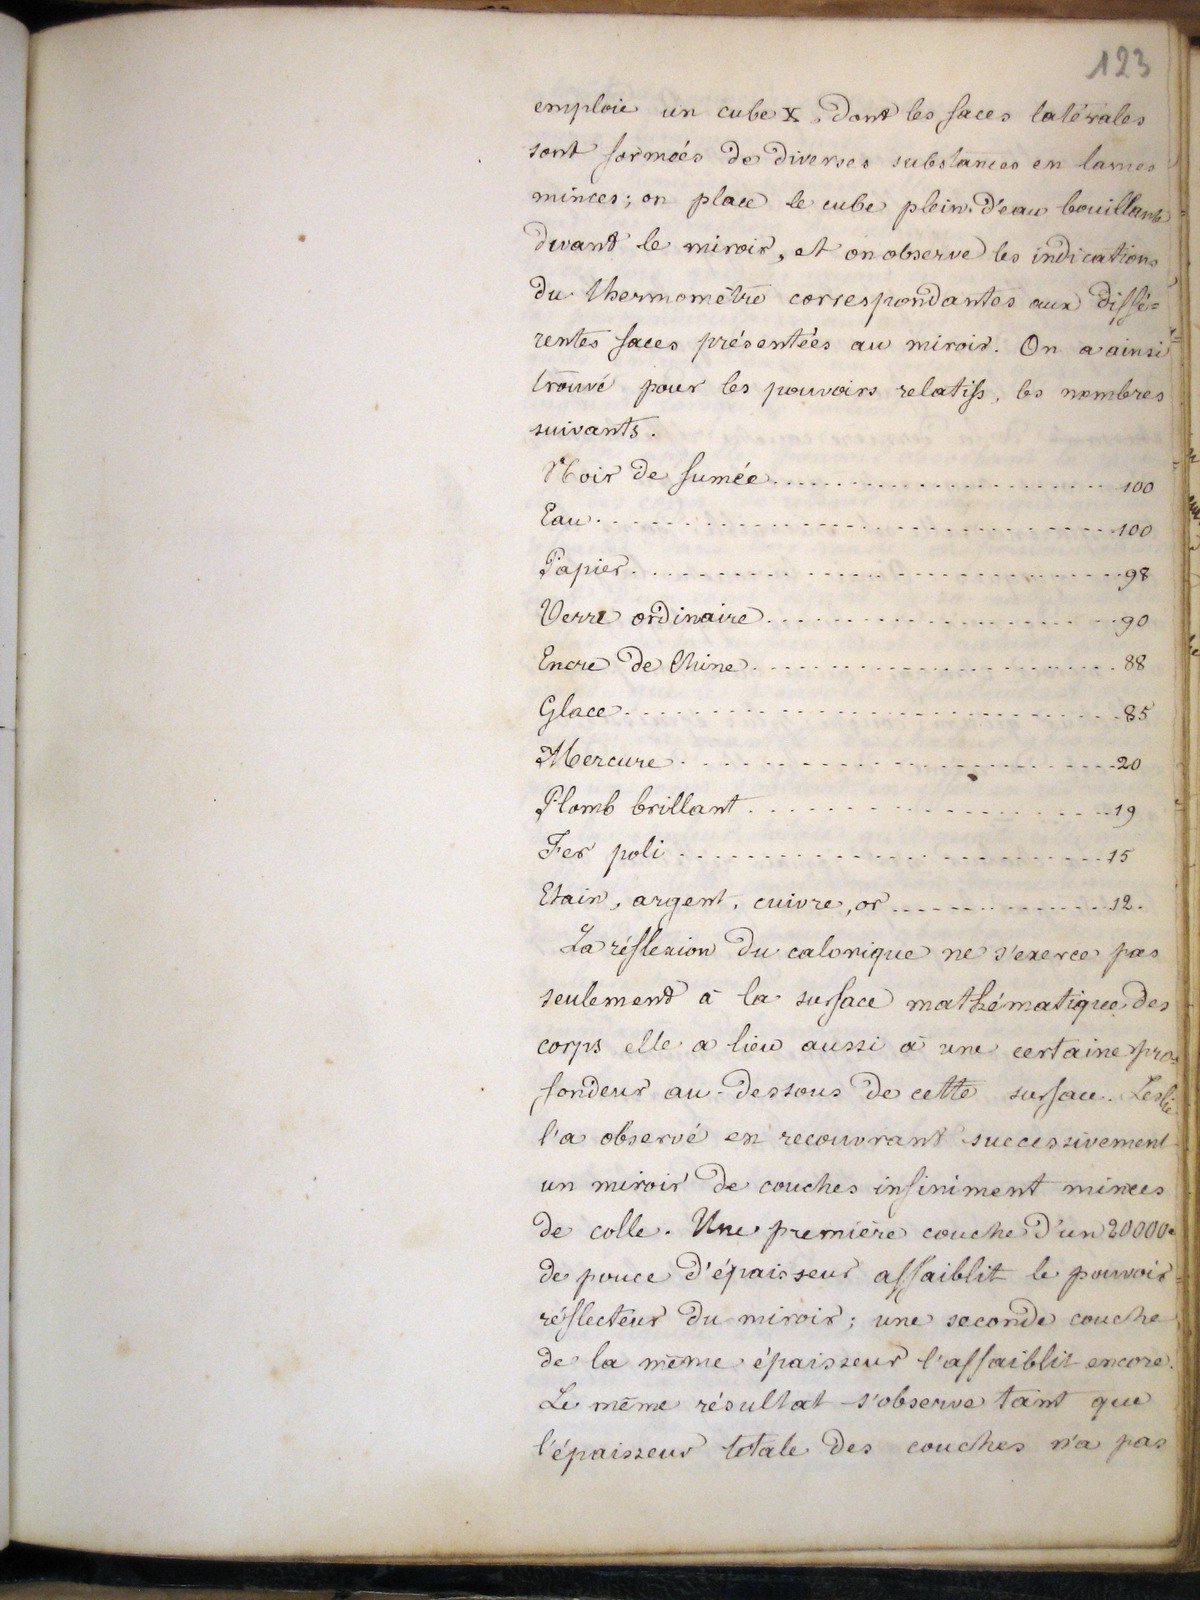 123
emploie un cube X, dont les faces latérales
sont formées de diverses substances en lames
minces; on place le cube plein d'eau bouillante
devant le miroir, et on observe les indications
du thermomètre correspondantes aux diffé=
rentes faces présentées au miroir. On a ainsi
trouvé pour les pouvoirs relatifs, les nombres
suivants.
Noir de fumée ........................ 100
Eau ........................ 100
Papier ........................ 98
Verre ordinaire ........................ 90
Encre de Chine ........................ 88
Glace ........................ 85
Mercure ........................ 20
Plomb brillant ........................ 19
Fer poli ........................ 15
Etain, argent, cuivre, or ........................ 12.
La réflexion du calorique ne s'exerce pas
seulement à la surface mathématique des
corps elle a lieu aussi à une certaine pro=
fondeur au-dessous de cette surface. Leslie
l'a observé en recouvrant successivement
un miroir de couches infiniment minces
de colle. Une première couche d'un 20000e
de pouce d'épaisseur affaiblit le pouvoir=
réflecteur du miroir; une seconde couche
de la même épaisseur l'affaiblit encore.
Le même résultat s'observe tant que
l'épaisseur totale des couches n'a pas